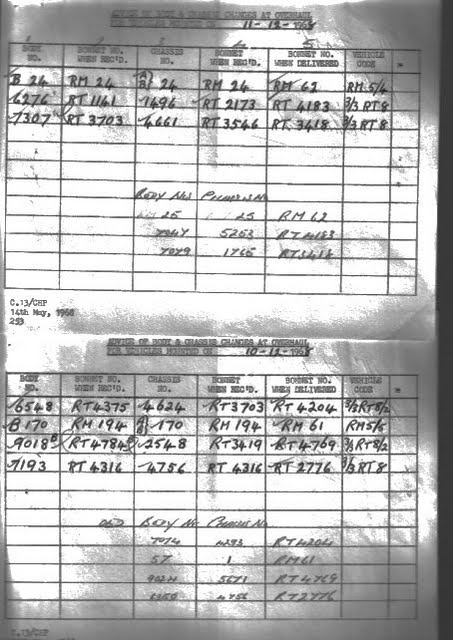 ADVICE OF BODY & CHASSIS CHANGES AT OVERHAUL
FOR VEHICLES MOUNTED ON 11-12-1968
BODY NO. BONNET NO. WHEN REC'D. CHASSIS NO. BONNET WHEN REC'D. BONNET NO. WHEN DELIVERED VEHICLE CODE
B 24 RM 24 24 RM 24 RM 62 RM 5/4
6276 RT 1141 1496 RT 2173 RT 4183 3/3 RT 8
7307 RT 3703 4661 RT 3546 RT 3418 3/3 RT 8
BODY Nos
25 25 RM 62
5253 RT 4183
7079 1765 RT 3418
C.13/CHP
14th May, 1968
253
ADVICE OF BODY & CHASSIS CHANGES AT OVERHAUL
FOR VEHICLES MOUNTED ON 10-12-1968
BODY NO. BONNET NO. WHEN REC'D. CHASSIS NO. BONNET WHEN REC'D. BONNET NO. WHEN DELIVERED VEHICLE CODE
6548 RT 4375 4624 RT 3703 RT 4204 3/3 RT 8/2
B 170 RM 194 170 RM 194 RM 61 RM 5/5
9018 RT 4784 2548 RT 3419 RT 4769 3/3 RT 8/2
7193 RT 4316 4756 RT 4316 RT 2776 3/3 RT 8
OLD BODY No CHASSIS No
7074 4293 RT 4204
57 1 RM 61
9024 5671 RT 4769
4756 RT 2776
C.13/CHP